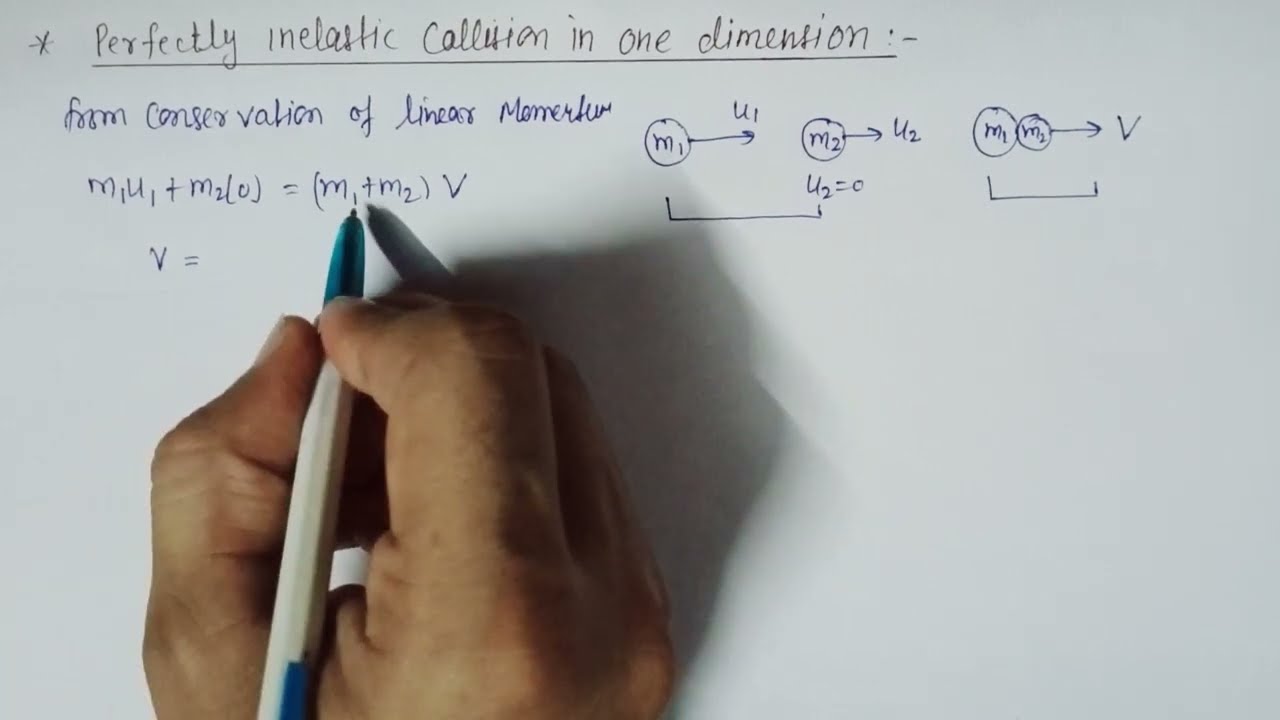 * Perfectly inelastic Callision in one dimension :-
from conservation of linear Momentum
m₁u₁ + m₂(0) = (m₁+m₂) V
V =
m₁ u₁ m₂ u₂
u₂=0
m₁ m₂ V